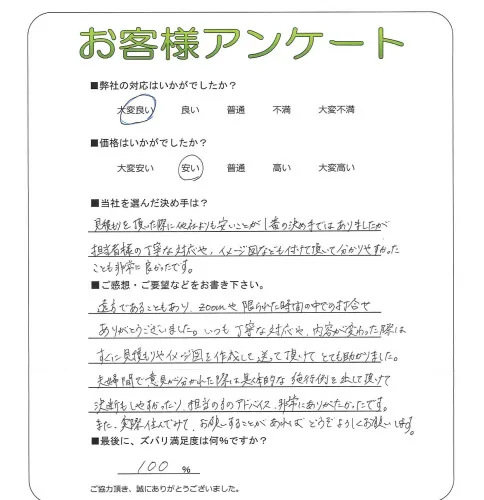 お客様アンケート
■弊社の対応はいかがでしたか?
大変良い 良い 普通 不満 大変不満
■価格はいかがでしたか?
大変安い 安い 普通 高い 大変高い
■当社を選んだ決め手は?
見積もりを頂いた際に他社よりも安いことが1番の決め手ではありましたが
担当者様の丁寧な対応や、イメージ図なども付けて頂いて分かりやすかった
ことも非常に良かったです。
■ご感想・ご要望などをお書き下さい。
遠方であることもあり、zoomや限られた時間の中での打合せ
ありがとうございました。いつも丁寧な対応や、内容が変わった際は
すぐに見積もりやイメージ図を作成して送って頂けてとても助かりました。
夫婦間で意見が分かれた際は具体的な施行例を出して頂けて
決断もしやすかったり、担当の方のアドバイス、非常にありがたかったです。
また、実際住んでみて、お願いすることがあればどうぞよろしくお願いします。
■最後に、ズバリ満足度は何%ですか?
100 %
ご協力頂き、誠にありがとうございました。